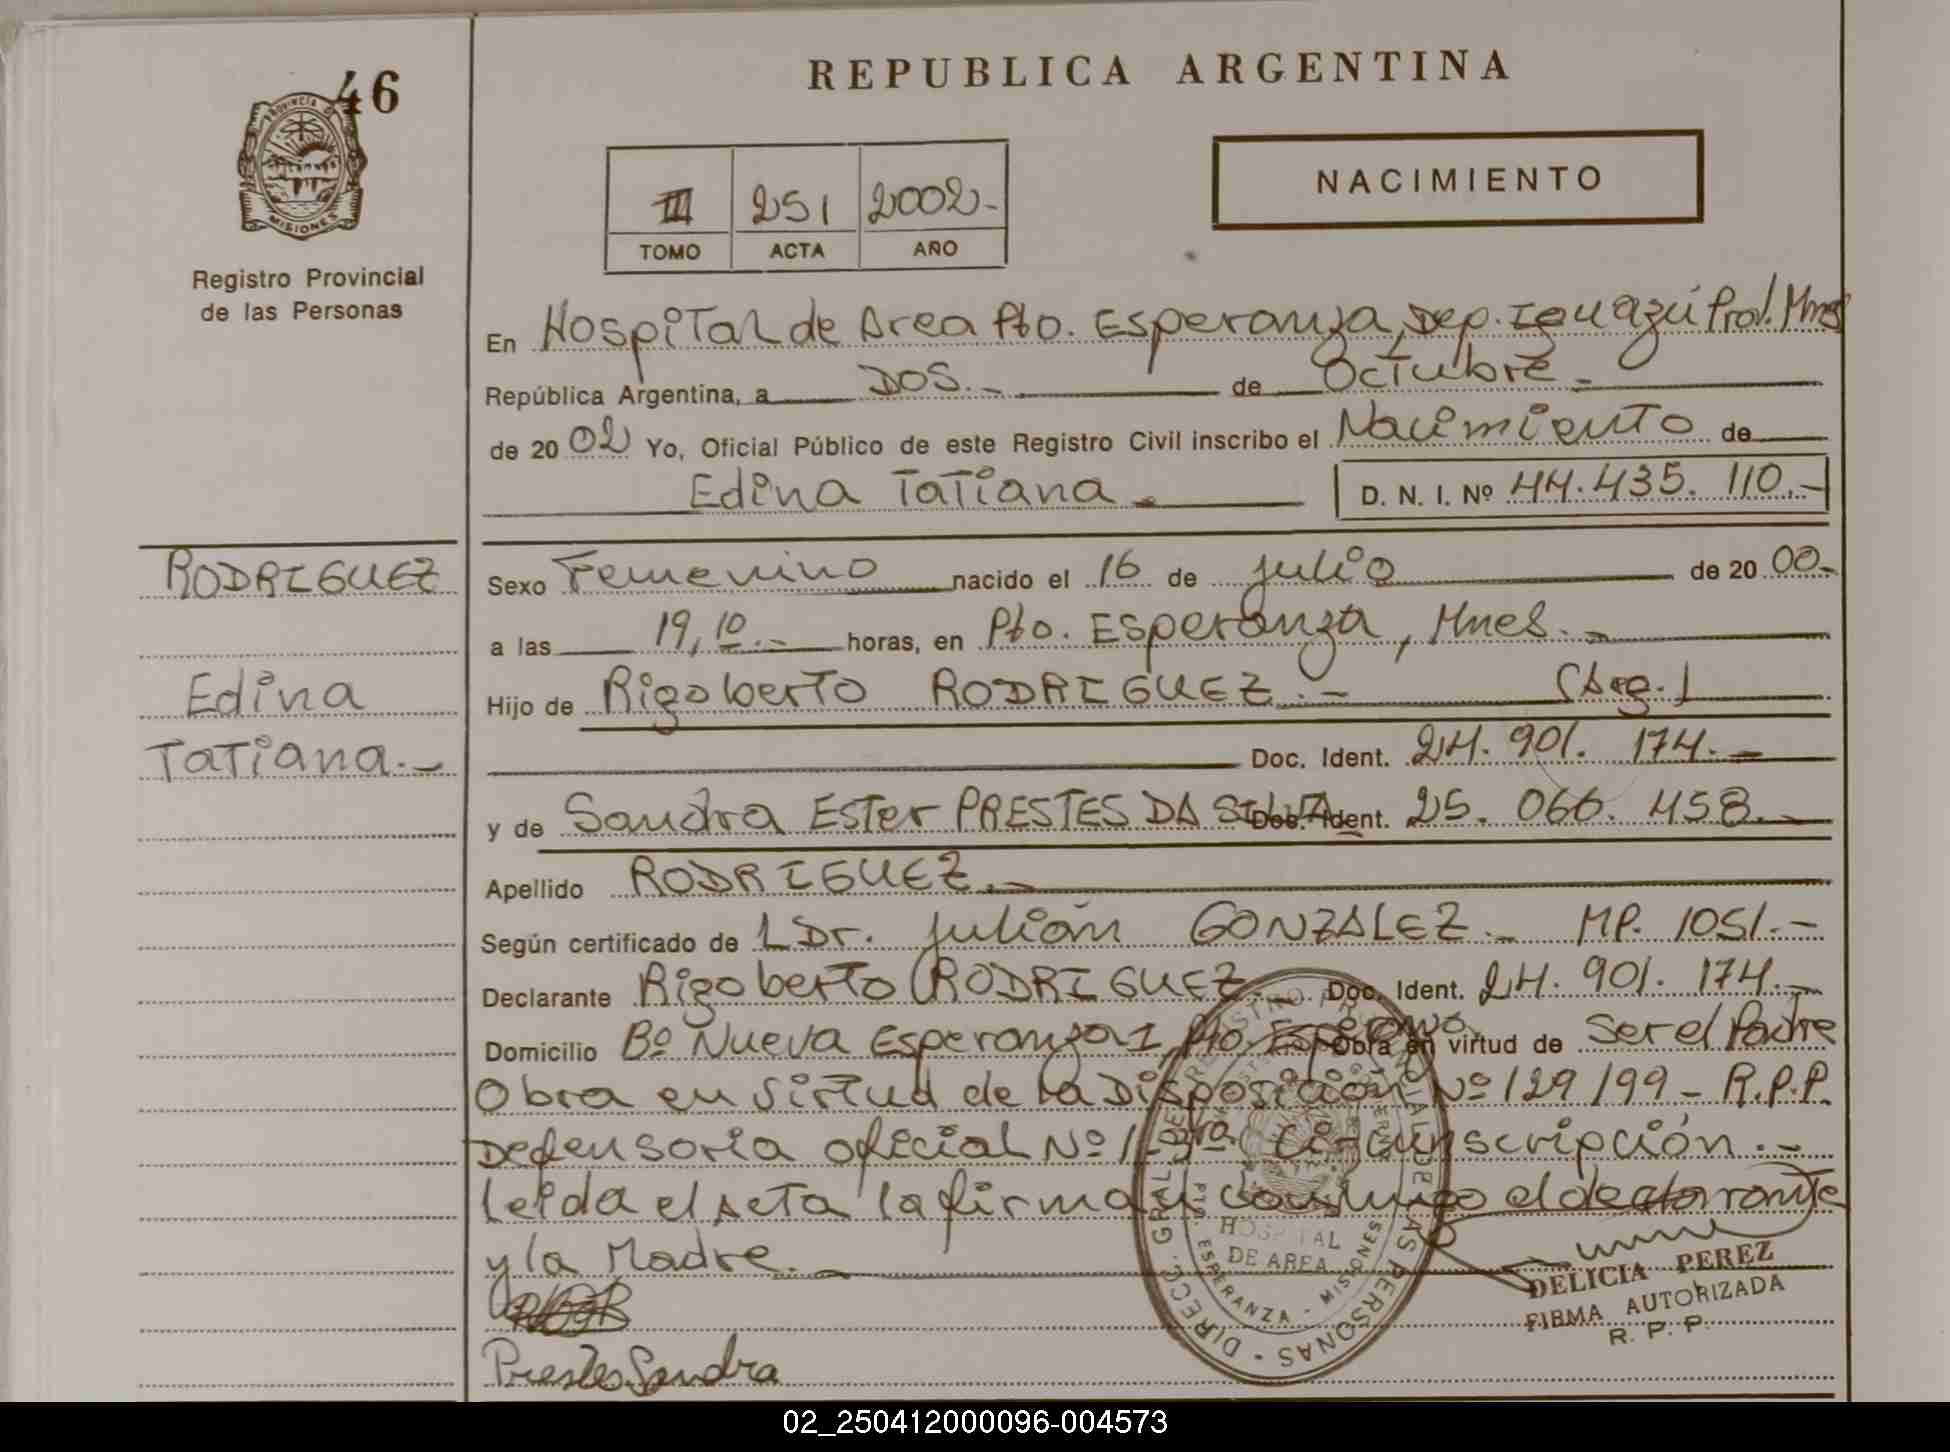 46
PROVINCIA DE
MISIONES
Registro Provincial
de las Personas
REPUBLICA ARGENTINA
III 251 2002-
TOMO ACTA AÑO
NACIMIENTO
En Hospital de Area Pto. Esperanza, Dep. Iguazú Prov. Mnes
República Argentina, a DOS.- de Octubre -
de 2002 Yo, Oficial Público de este Registro Civil inscribo el Nacimiento de
Edina Tatiana.-
D. N. I. Nº 44.435.110.-
RODRIGUEZ
Edina
Tatiana.-
Sexo Femenino nacido el 16 de julio de 2000.-
a las 19,10.- horas, en Pto. Esperanza, Mnes.-
Hijo de Rigoberto RODRIGUEZ.-
Doc. Ident. 24.901.174.-
y de Sandra Ester PRESTES DA SILVA Doc. Ident. 25.066.458.-
Apellido RODRIGUEZ.-
Según certificado de 1 Dr. Julián GONZALEZ.- MP. 1051.-
Declarante Rigoberto RODRIGUEZ.- Doc. Ident. 24.901.174.-
Domicilio Bº Nueva Esperanza 1, Pto. Esperanza Obra en virtud de Ser el Padre
Obra en virtud de la Disposición Nº 129/99 - R.P.P.
Defensoria oficial Nº 1 - 3ra Circunscripción.-
leida el acta la firman conmigo el declarante
y la Madre.-
Prestes Sandra
DIREC. GRAL. DEL REGISTRO PROVINCIAL DE LAS PERSONAS
HOSPITAL
DE AREA
PTO. ESPERANZA - MISIONES
DELICIA PEREZ
FIRMA AUTORIZADA
R. P. P.
02_250412000096-004573